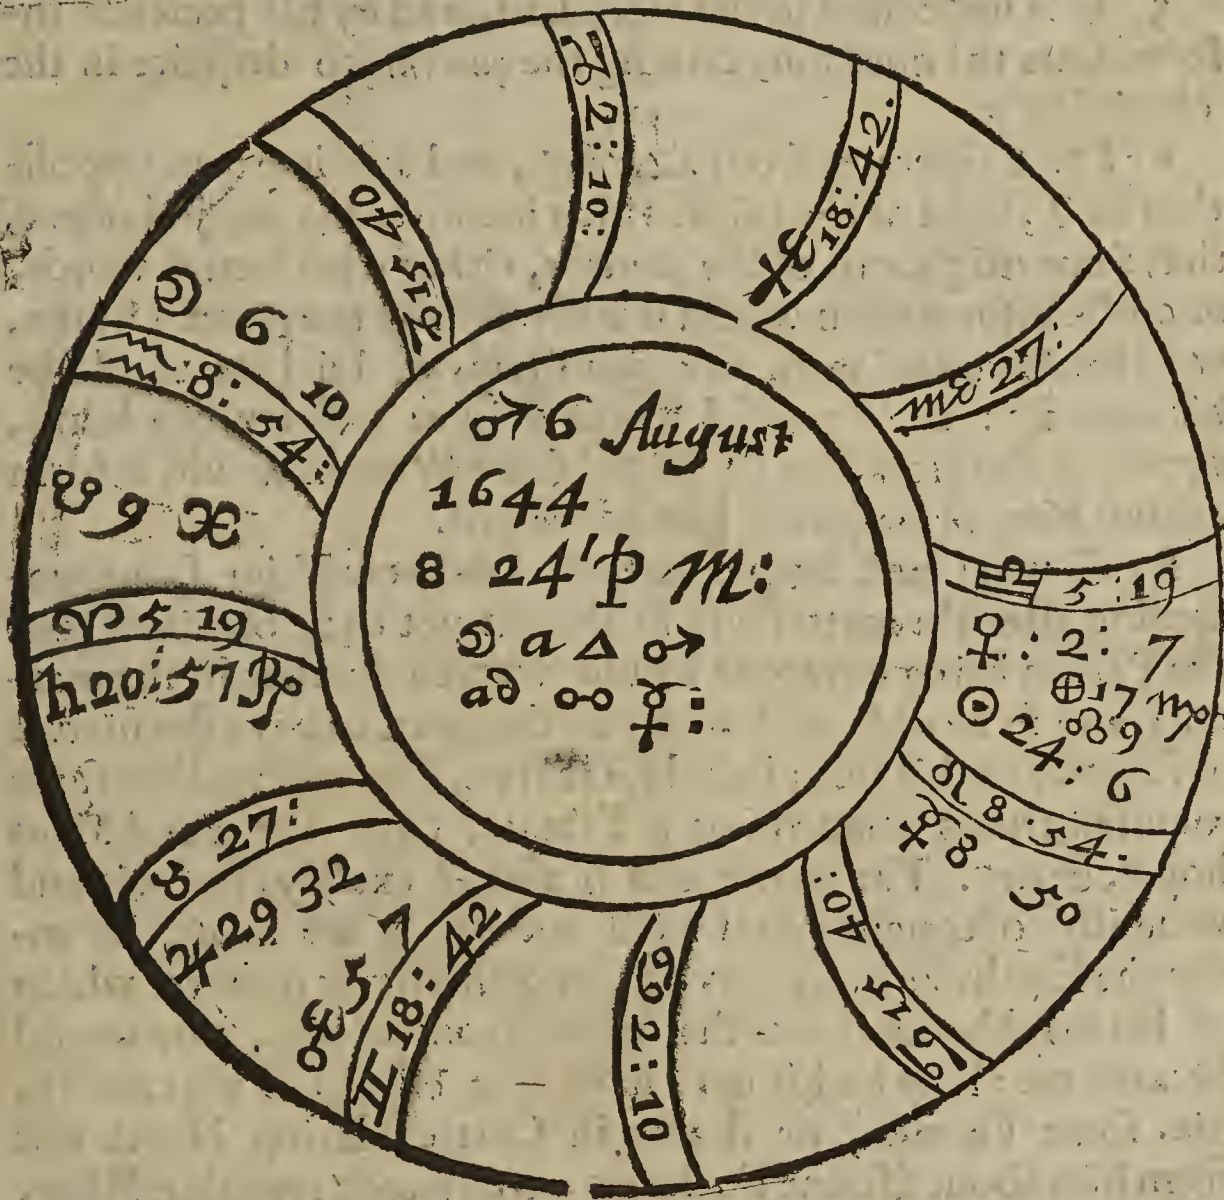 ♂ 6 August
1644
8 24' P M:
☽ a △ ♂
ad ☍ ☿:
♑ 2:10:
♐ 18:42.
♏ 27:
♎ 5:19
♀: 2: 7
⊕ 17 ♍
☉ 24: 6
☊ 9
♌ 8:54.
☿ 8 50
♋ 15 40:
♋ 2:10
♊ 18:42
♂ 5 7
♃ 29 32
♉ 27:
♄ 20:57 ℞
♈ 5 19
☋ 9 ♓
♒ 8:54:
☽ 6 10
♑ 15 40